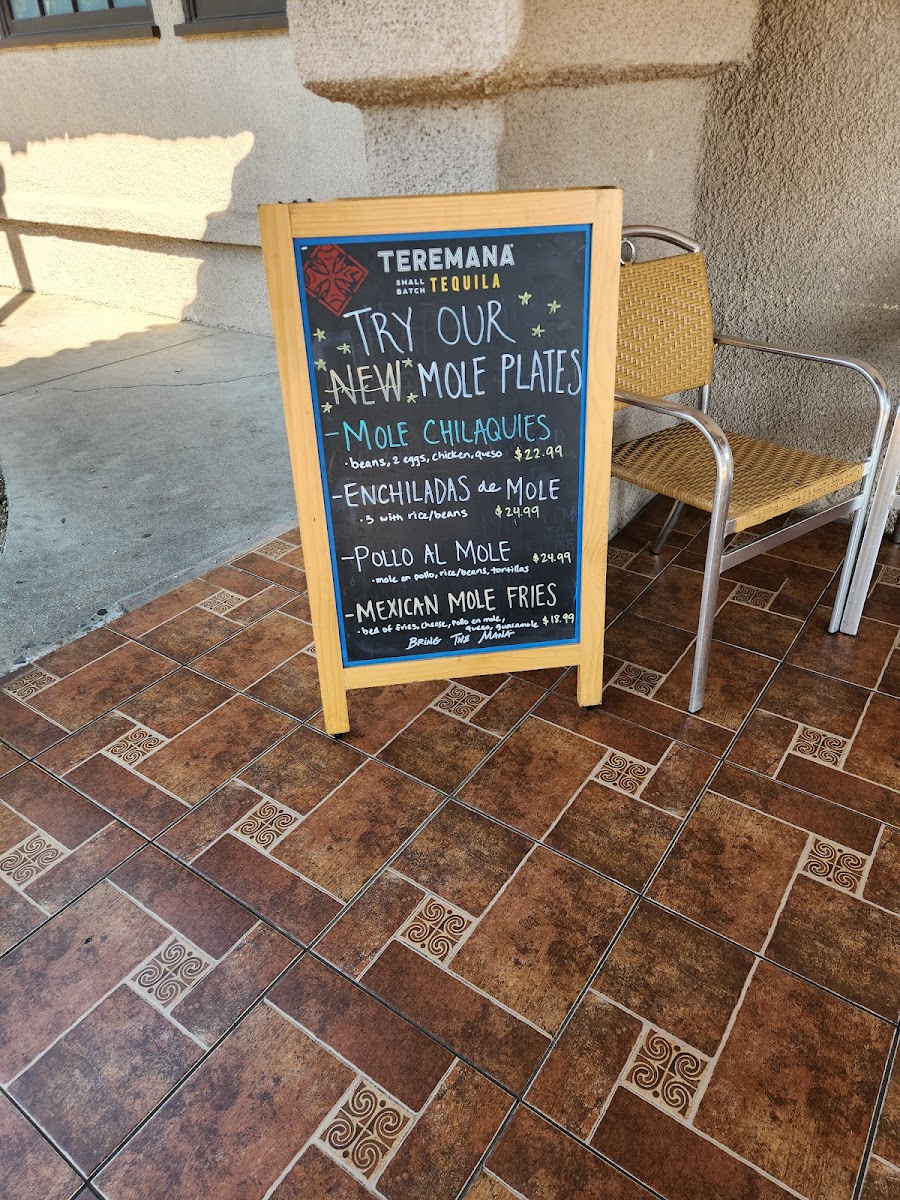 TEREMANA
SMALL BATCH TEQUILA
TRY OUR
NEW MOLE PLATES
-MOLE CHILAQUIES
·beans, 2 eggs, chicken, queso $22.99
-ENCHILADAS de MOLE
·3 with rice/beans $24.99
-POLLO AL MOLE $24.99
·mole en pollo, rice/beans, tortillas
-MEXICAN MOLE FRIES
·bed of fries, cheese, pollo en mole, $18.99
queso, guacamole
BRING THE MANA